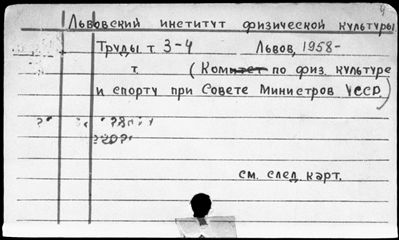 Львовский институт физической культуры
Труды т. 3-4 Львов, 1958-
т. (Комитет по физ. культуре
и спорту при Совете Министров УССР)
см. след. карт.